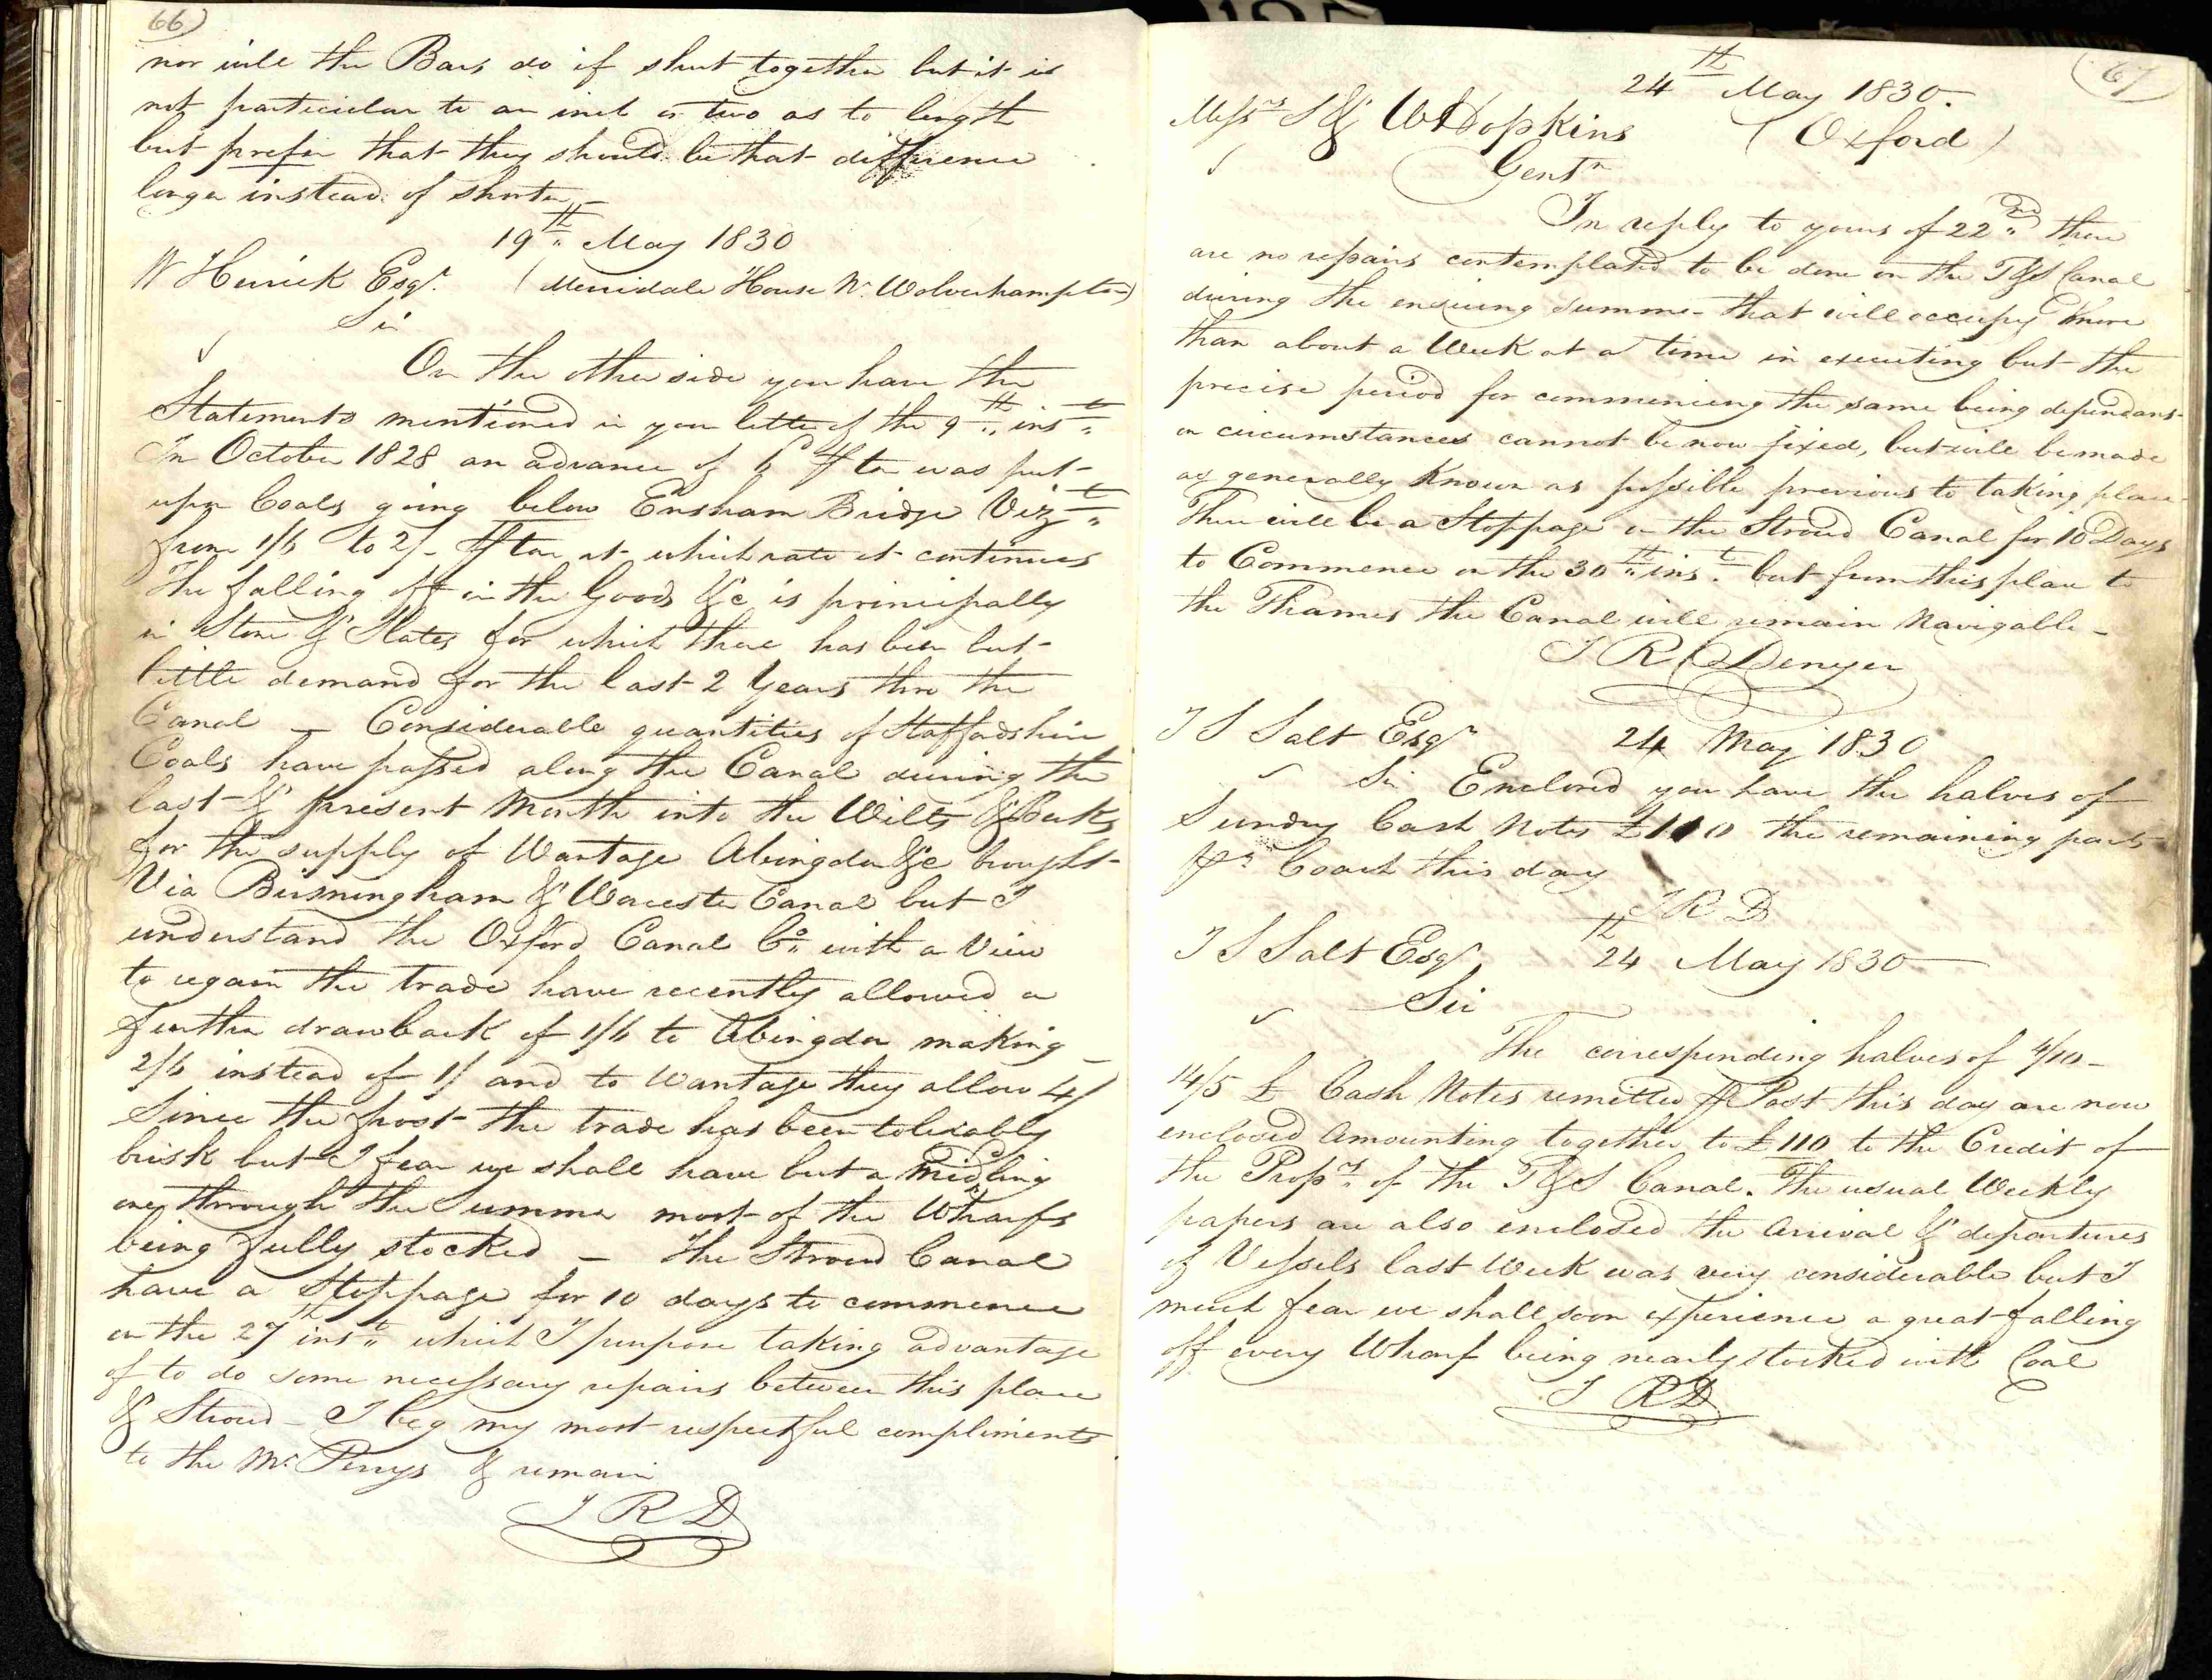 66)
nor will the Bars do if shut together but it is
not particular to an inch or two as to length
but prefer that they should be that difference
longer instead of shorter –
19th May 1830
W Herrick Esqr. (Merridale House Nr. Wolverhampton)
Sir
On the other side you have the
Statements mentioned in your letter of the 9th inst
In October 1828 an advance of 6d ⅌ ton was put
upon Coals going below Ensham Bridge Vizt
from 1/6 to 2/- ⅌ ton at which rate it continues
The falling off in the Goods &c is principally
in Stone & Slates for which there has been but
little demand for the last 2 Years thro the
Canal – Considerable quantities of Staffordshire
Coals have passed along the Canal during the
last & present Month into the Wilts & Berks
for the supply of Wantage Abingdon &c brought
Via Birmingham & Worcester Canal but I
understand the Oxford Canal Co. with a View
to regain the trade have recently allowed a
further drawback of 1/6 to Abingdon making
2/6 instead of 1/ and to Wantage they allow 4/
Since the frost the trade has been tolerably
brisk but I fear we shall have but a Midling
one through the Summer most of the Wharfs
being fully stocked – The Stroud Canal
have a Stoppage for 10 days to commence
on the 27th inst which I purpose taking advantage
of to do some necessary repairs between this place
& Stroud – I beg my most respectful compliments
to the Mr Perrys & remain
J R D
67
24th May 1830.
Messrs S & W Hopkins (Oxford)
Gentn
In reply to yours of 22nd there
are no repairs contemplated to be done on the T&S Canal
during the ensuing Summer that will occupy more
than about a Week at a time in executing but the
precise period for commencing the same being dependant
on circumstances cannot be now fixed, but will be made
as generally Known as possible previous to taking place
There will be a Stoppage on the Stroud Canal for 10 Days
to Commence on the 30th inst. but from this place to
the Thames the Canal will remain Navigable –
J R Denyer
J S Salt Esqr 24 May 1830
Sir Enclosed you have the halves of
Sundry Cash Notes £110 the remaining parts
⅌r Coach this day
J R D
J S Salt Esqr 24th May 1830
Sir
The corresponding halves of 4/10 –
14/5 £ Cash Notes remitted ⅌ Post this day are now
enclosed Amounting together to £110 to the Credit of
the Proprs of the T&S Canal. The usual Weekly
papers are also enclosed the Arrival & departures
of Vessels last Week was very considerable but I
much fear we shall soon experience a great falling
off every Wharf being nearly stocked with Coal
J R D